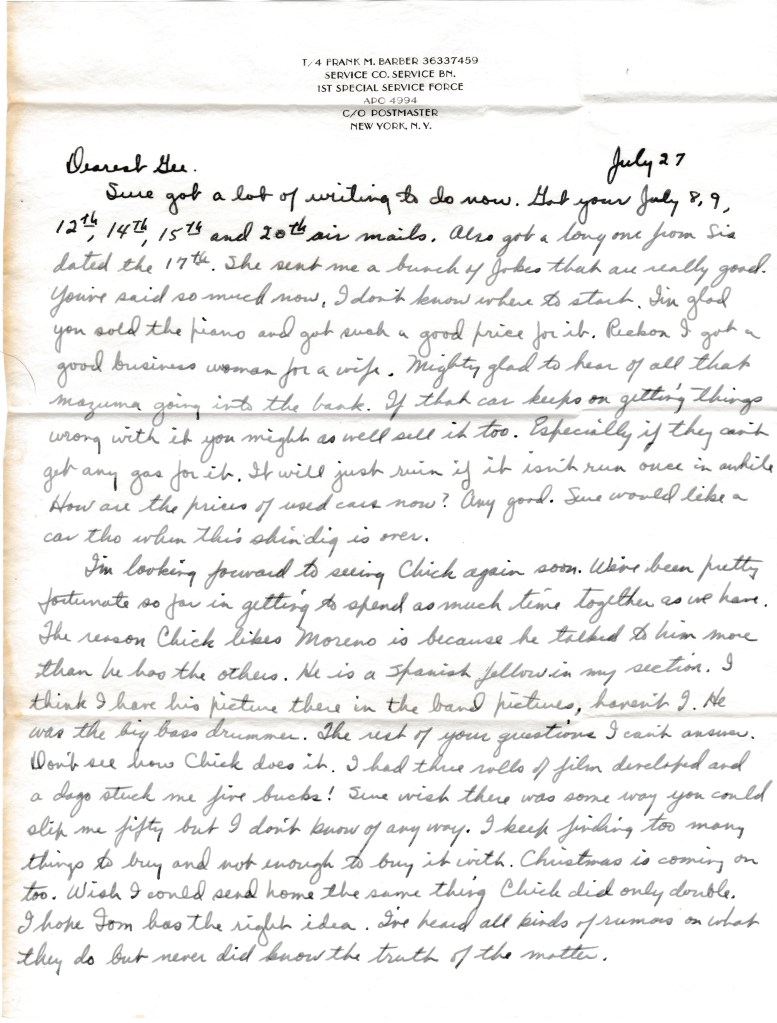 T/4 FRANK M. BARBER 36337459
SERVICE CO. SERVICE BN.
1ST SPECIAL SERVICE FORCE
APO 4994
C/O POSTMASTER
NEW YORK, N. Y.
Dearest Gee. July 27
Sure got a lot of writing to do now. Got your July 8, 9,
12th, 14th, 15th and 20th air mails. Also got a long one from Sis
dated the 17th. She sent me a bunch of jokes that are really good.
You've said so much now, I don't know where to start. I'm glad
you sold the piano and got such a good price for it. Reckon I got a
good business woman for a wife. Mighty glad to hear of all that
mazuma going into the bank. If that car keeps on getting things
wrong with it you might as well sell it too. Especially if they can't
get any gas for it. It will just ruin if it isn't run once in awhile
How are the prices of used cars now? Any good. Sure would like a
car tho when this shindig is over.
I'm looking forward to seeing Chick again soon. We've been pretty
fortunate so far in getting to spend as much time together as we have.
The reason Chick likes Moreno is because he talked to him more
than he has the others. He is a Spanish fellow in my section. I
think I have his picture there in the band pictures, haven't I. He
was the big bass drummer. The rest of your questions I can't answer.
Don't see how Chick does it. I had three rolls of film developed and
a dago stuck me five bucks! Sure wish there was some way you could
slip me fifty but I don't know of any way. I keep finding too many
things to buy and not enough to buy it with. Christmas is coming on
too. Wish I could send home the same thing Chick did only double.
I hope Tom has the right idea. I've heard all kinds of rumors on what
they do but never did know the truth of the matter.